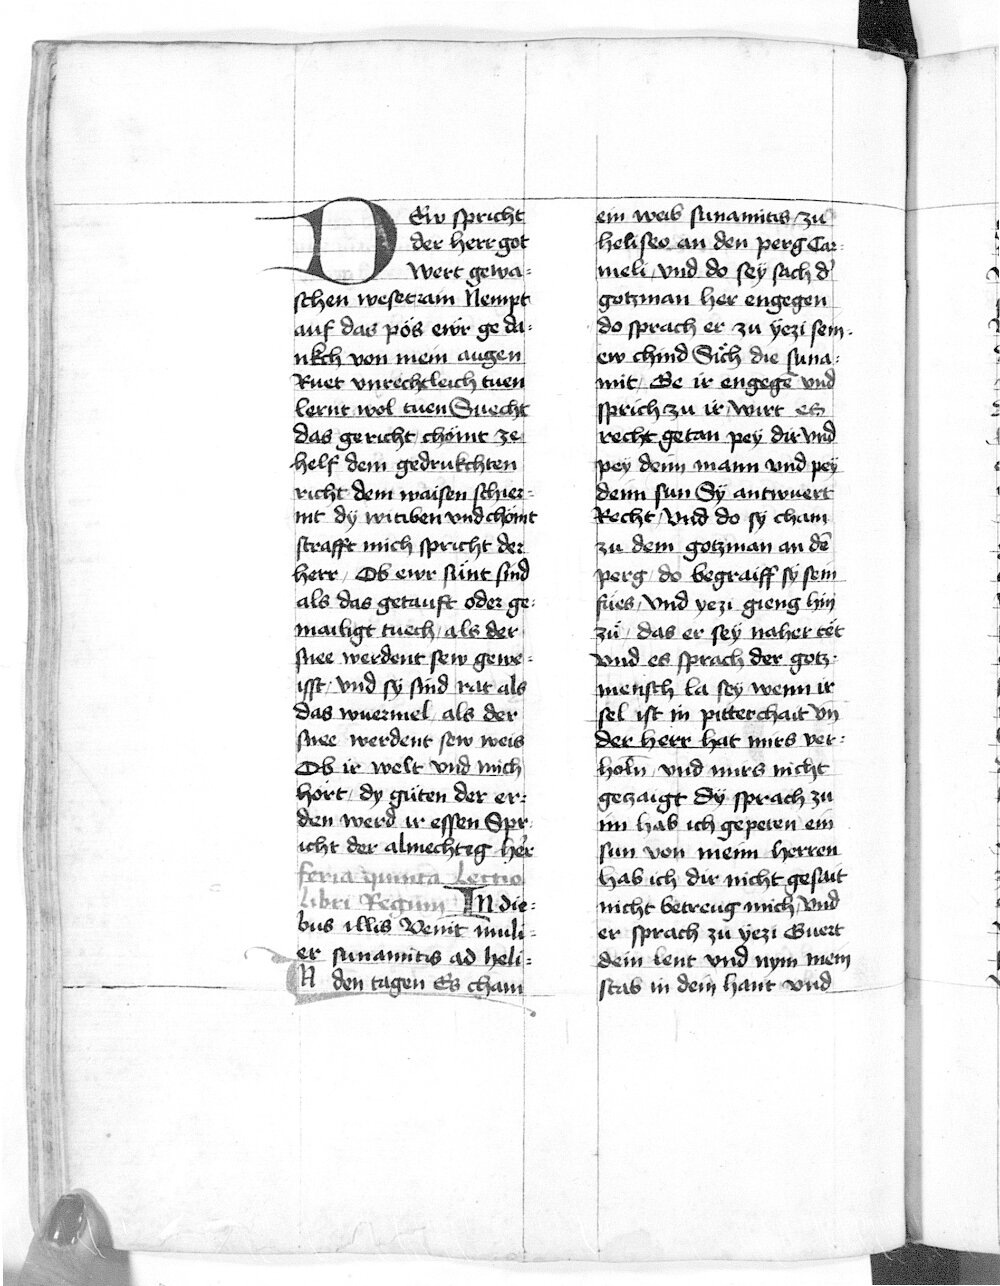 Dew spricht
der herr got
wert gewa-
schen weset rain Nempt
auf das pös ewr geda-
nkch von mein augen
Ruet vnrechtleich tuen
lernt wol tuen Suecht
das gericht chömt ze
helf dem gedrukchten
richt dem waisen schier-
mt dy witiben vnd chömt
strafft mich spricht der
herr / Ob ewr sünt sind
als das getauft oder ge-
mailigt tuech / als der
snee werdent sew gewe-
isst / vnd sy sind rat als
das wuermel als der
snee werdent sew weis
Ob ir welt vnd mich
hört / dy güten der er-
den werd ir essen Spr-
icht der almechtig her̄
feria quinta Lectio
libri Regum In die-
bus illis Venit muli-
er sunamitis ad heli-
IN den tagen Es cham
ein weib sunamitis / zu
heliseo an den perg Car-
meli / vnd do sey sach d'
gotzman her engegen
do sprach er zu yezi sein-
ew chind Sich die suna-
mit / Ge ir engegē vnd
sprich zu ir / wirt es
recht getan pey dir vnd
pey deim mann vnd pey
deim sun Sy antwuert
Recht / Vnd do sy cham
zu dem gotzman an dē
perg / do begraiff sy sein
fües / vnd yezi gieng hin
zu / das er sey naher tët
vnd es sprach der gotz-
mensch la sey wenn ir
sel ist in pitterchait vn̄
der herr hat mirs ver-
holn / vnd mirs nicht
gezaigt Dy sprach zu
im hab ich gepeten ein
sun von meim herren
hab ich dir nicht gesait
nicht betreug mich / Vnd
er sprach zu yezi Guert
dein lent vnd nym mein
stab in dein hant vnd